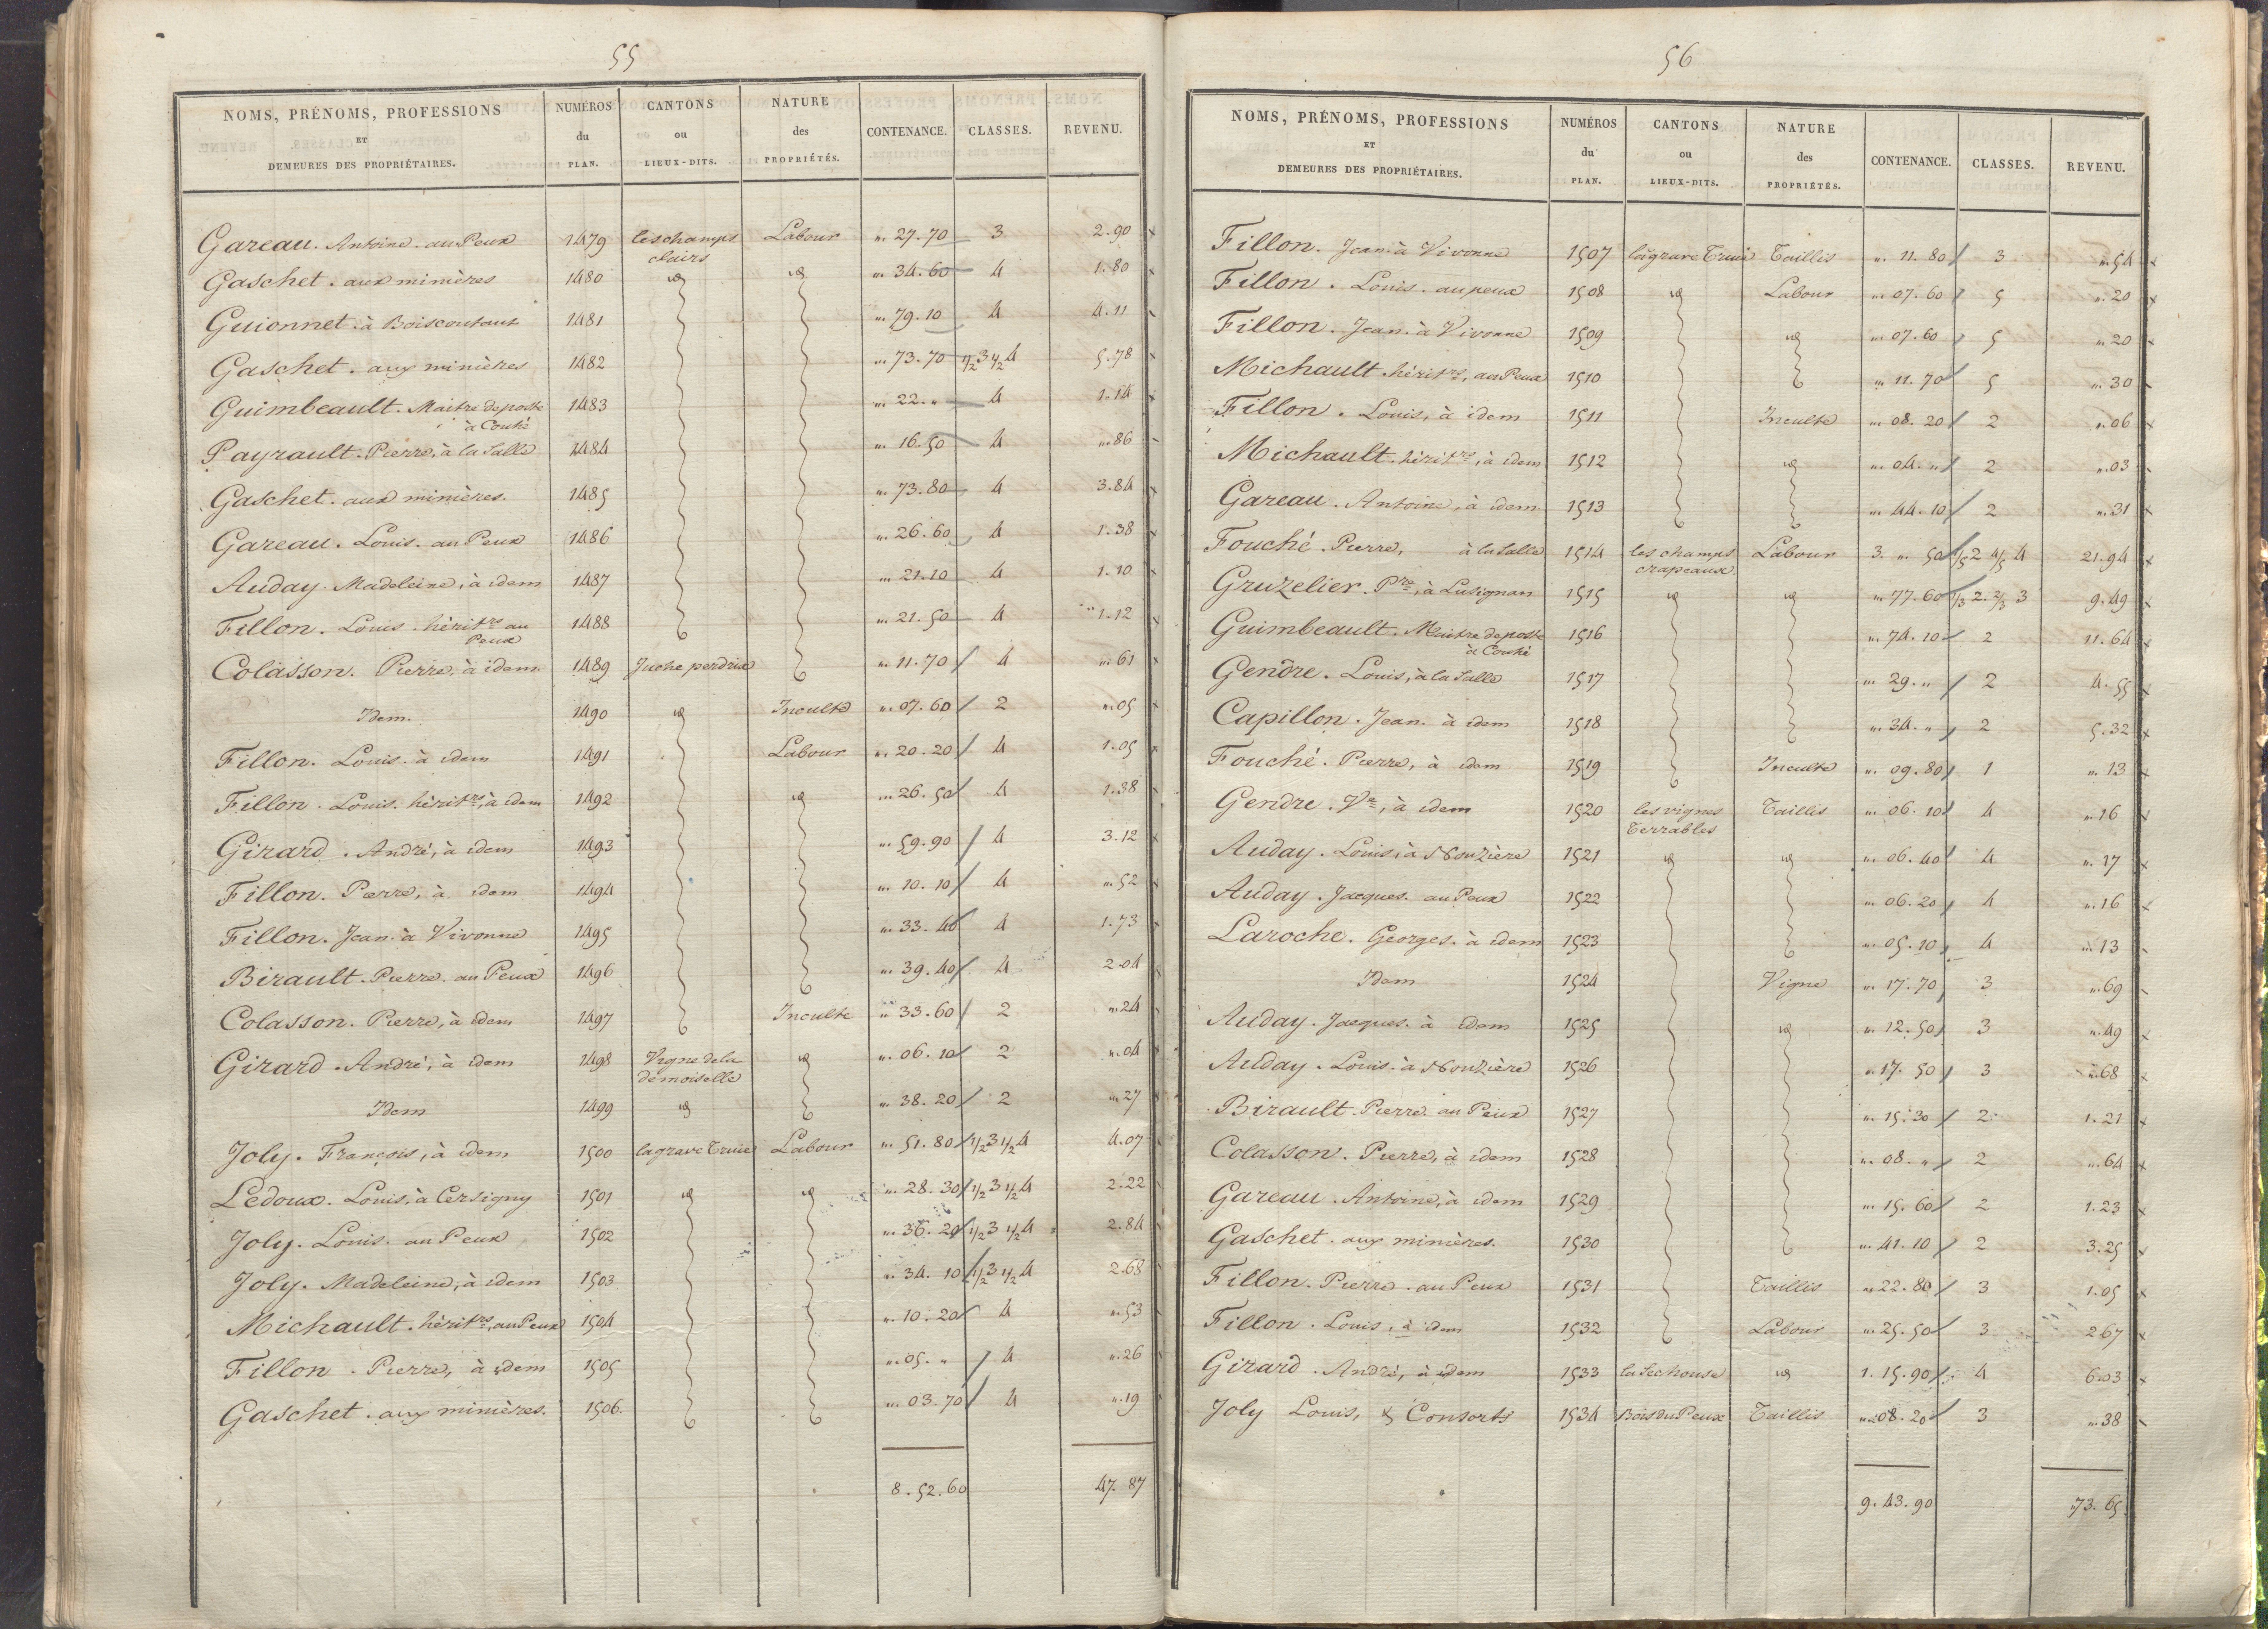 55
NOMS, PRÉNOMS, PROFESSIONS ET DEMEURES DES PROPRIÉTAIRES. NUMÉROS du PLAN. CANTONS ou LIEUX-DITS. NATURE des PROPRIÉTÉS. CONTENANCE. CLASSES. REVENU.
Gareau. Antoine. au Peux 1479 les champs clairs Labour „. 27.70 3 2.90
Gaschet. aux minières 1480 id id „. 34.60 4 1.80
Guionnet. à Boiscoutant 1481 „. 79.10 4 4.11
Gaschet. aux minières 1482 „. 73.70 1/2 3 1/2 4 5.78
Guimbeault. Maitre de poste à Couhé 1483 „. 22. „ 4 1.14
Payrault. Pierre, à la Salle 1484 „. 16.50 4 „. 86
Gaschet. aux minières. 1485 „. 73.80 4 3.84
Gareau. Louis. au Peux 1486 „. 26.60 4 1.38
Auday. Madeleine, à idem 1487 „. 21.10 4 1.10
Fillon. Louis. hérit.rs au Peux 1488 „. 21.50 4 1.12
Colasson. Pierre, à idem. 1489 Juche perdrix „. 11.70 4 „. 61
Idem. 1490 id Inculte „. 07.60 2 „. 05
Fillon. Louis. à idem 1491 Labour „. 20.20 4 1.05
Fillon. Louis. hérit.rs, à idem 1492 id „. 26.50 4 1.38
Girard. André, à idem 1493 „. 59.90 4 3.12
Fillon. Pierre, à idem 1494 „. 10.10 4 „. 52
Fillon. Jean. à Vivonne 1495 „. 33.40 4 1.73
Birault. Pierre. au Peux 1496 „. 39.40 4 2.04
Colasson. Pierre, à idem 1497 Inculte „. 33.60 2 „. 24
Girard. André, à idem 1498 Vigne de la demoiselle id „. 06.10 2 „. 04
Idem 1499 id „. 38.20 2 „. 27
Joly. François, à idem 1500 la grave Truie Labour „. 51.80 1/2 3 1/2 4 4.07
Ledoux. Louis, à Cersigny 1501 id id „. 28.30 1/2 3 1/2 4 2.22
Joly. Louis. au Peux 1502 „. 36.20 1/2 3 1/2 4 2.84
Joly. Madeleine, à idem 1503 „. 34.10 1/2 3 1/2 4 2.68
Michault. hérit.rs, au Peux 1504 „. 10.20 4 „. 53
Fillon. Pierre, à idem 1505 „. 05. „ 4 „. 26
Gaschet. aux minières. 1506. „. 03.70 4 „. 19
8.52.60 47.87
56
NOMS, PRÉNOMS, PROFESSIONS ET DEMEURES DES PROPRIÉTAIRES. NUMÉROS du PLAN. CANTONS ou LIEUX-DITS. NATURE des PROPRIÉTÉS. CONTENANCE. CLASSES. REVENU.
Fillon. Jean à Vivonne 1507 la grave Truie Taillis „. 11.80 3 „. 54
Fillon. Louis. au peux 1508 id Labour „. 07.60 5 „. 20
Fillon. Jean. à Vivonne 1509 id „. 07.60 5 „. 20
Michault. hérit.rs, au Peux 1510 „. 11.70 5 „. 30
Fillon. Louis, à idem 1511 Inculte „. 08.20 2 „. 06
Michault. hérit.rs, à idem 1512 id „. 04. „ 2 „. 03
Gareau. Antoine, à idem. 1513 „. 44.10 2 „. 31
Fouché. Pierre, à la Salle 1514 les champs crapeaux. Labour 3. „. 50 1/5 2 4/5 4 21.94
Gruzelier. Pre, à Lusignan 1515 id id „. 77.60 1/3 2. 2/3 3 9.49
Guimbeault. Maitre de poste à Couhé 1516 „. 74.10 2 11.64
Gendre. Louis, à la Salle 1517 „. 29. „ 2 4.55
Capillon. Jean. à idem 1518 „. 34. „ 2 5.32
Fouché. Pierre, à idem 1519 Inculte „. 09.80 1 „. 13
Gendre. Ve, à idem 1520 les vignes Terrables Taillis „. 06.10 4 „. 16
Auday. Louis, à Nouzière 1521 id id „. 06.40 4 „. 17
Auday. Jacques. au Peux 1522 „. 06.20 4 „. 16
Laroche. Georges. à idem 1523 „. 05.10 4 „. 13
Idem 1524 Vigne „. 17.70 3 „. 69
Auday. Jacques. à idem 1525 id „. 12.50 3 „. 49
Auday. Louis. à Nouzière 1526 „. 17.50 3 „. 68
Birault. Pierre au Peux 1527 „. 15.30 2 1.21
Colasson. Pierre, à idem 1528 „. 08. „ 2 „. 64
Gareau. Antoine, à idem 1529 „. 15.60 2 1.23
Gaschet. aux minières. 1530 „. 41.10 2 3.25
Fillon. Pierre. au Peux 1531 Taillis „. 22.80 3 1.05
Fillon. Louis, à idem 1532 Labour „. 25.50 3 2.67
Girard. André, à idem 1533 la Sechouse id 1.15.90 4 6.03
Joly Louis, & Consorts 1534 Bois du Peux Taillis „. 08.20 3 „. 38
9.43.90 73.65